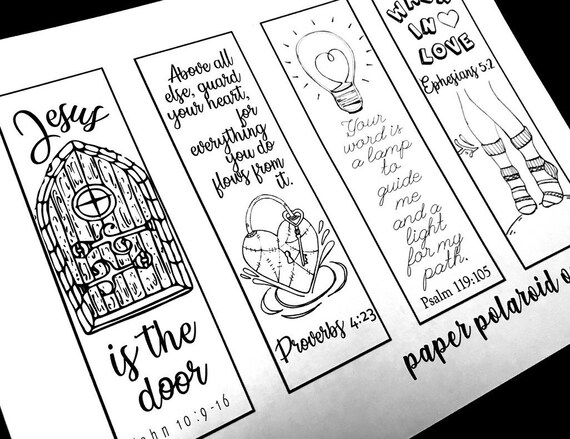 Jesus
is the
door
John 10:9-16
Above all
else, guard
your heart,
for
everything
you do
flows from
it.
Proverbs 4:23
Your
word is
a lamp
to
guide
me
and a
light
for my
path.
Psalm 119:105
IN
LOVE
Ephesians 5:2
paper polaroid